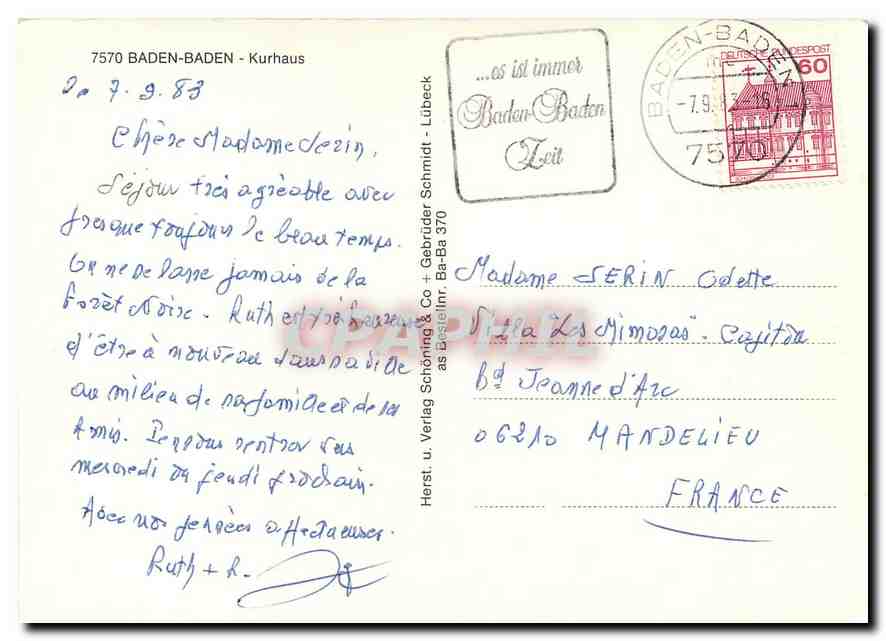 7570 BADEN-BADEN - Kurhaus
7.9.83
Chère Madame Serin,
Séjour très agréable avec
presque toujours le beau temps.
On ne se lasse jamais de la
Forêt Noire. Ruth est très heureuse
d'être à nouveau dans sa ville
au milieu de sa famille et de
Amis. Pensons rentrer vers
mercredi ou jeudi prochain.
Avec nos pensées affectueuses.
Ruth + R.
Herst. u. Verlag Schöning & Co + Gebrüder Schmidt - Lübeck
as Bestellnr. Ba-Ba 370
...es ist immer
Baden-Baden
Zeit
BADEN-BADEN
-7.9.83-16
7570
DEUTSCHE BUNDESPOST
60
Madame SERIN Odette
Villa "Les Mimosas". Capitou
Bd Jeanne d'Arc
06210 MANDELIEU
FRANCE
CPAPHIL